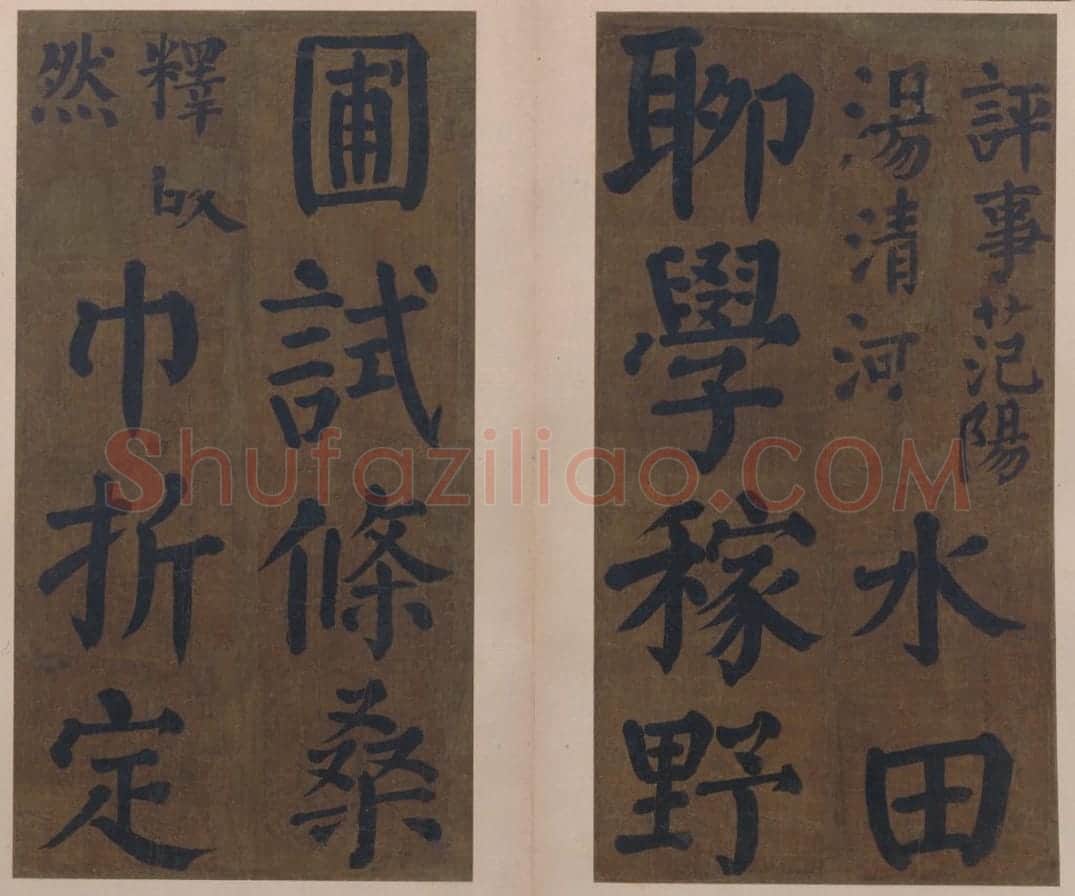 評事范陽
湯清河
水田
聊學稼野
圃試條桑
釋皎
然
巾折定
Shufaziliao.COM